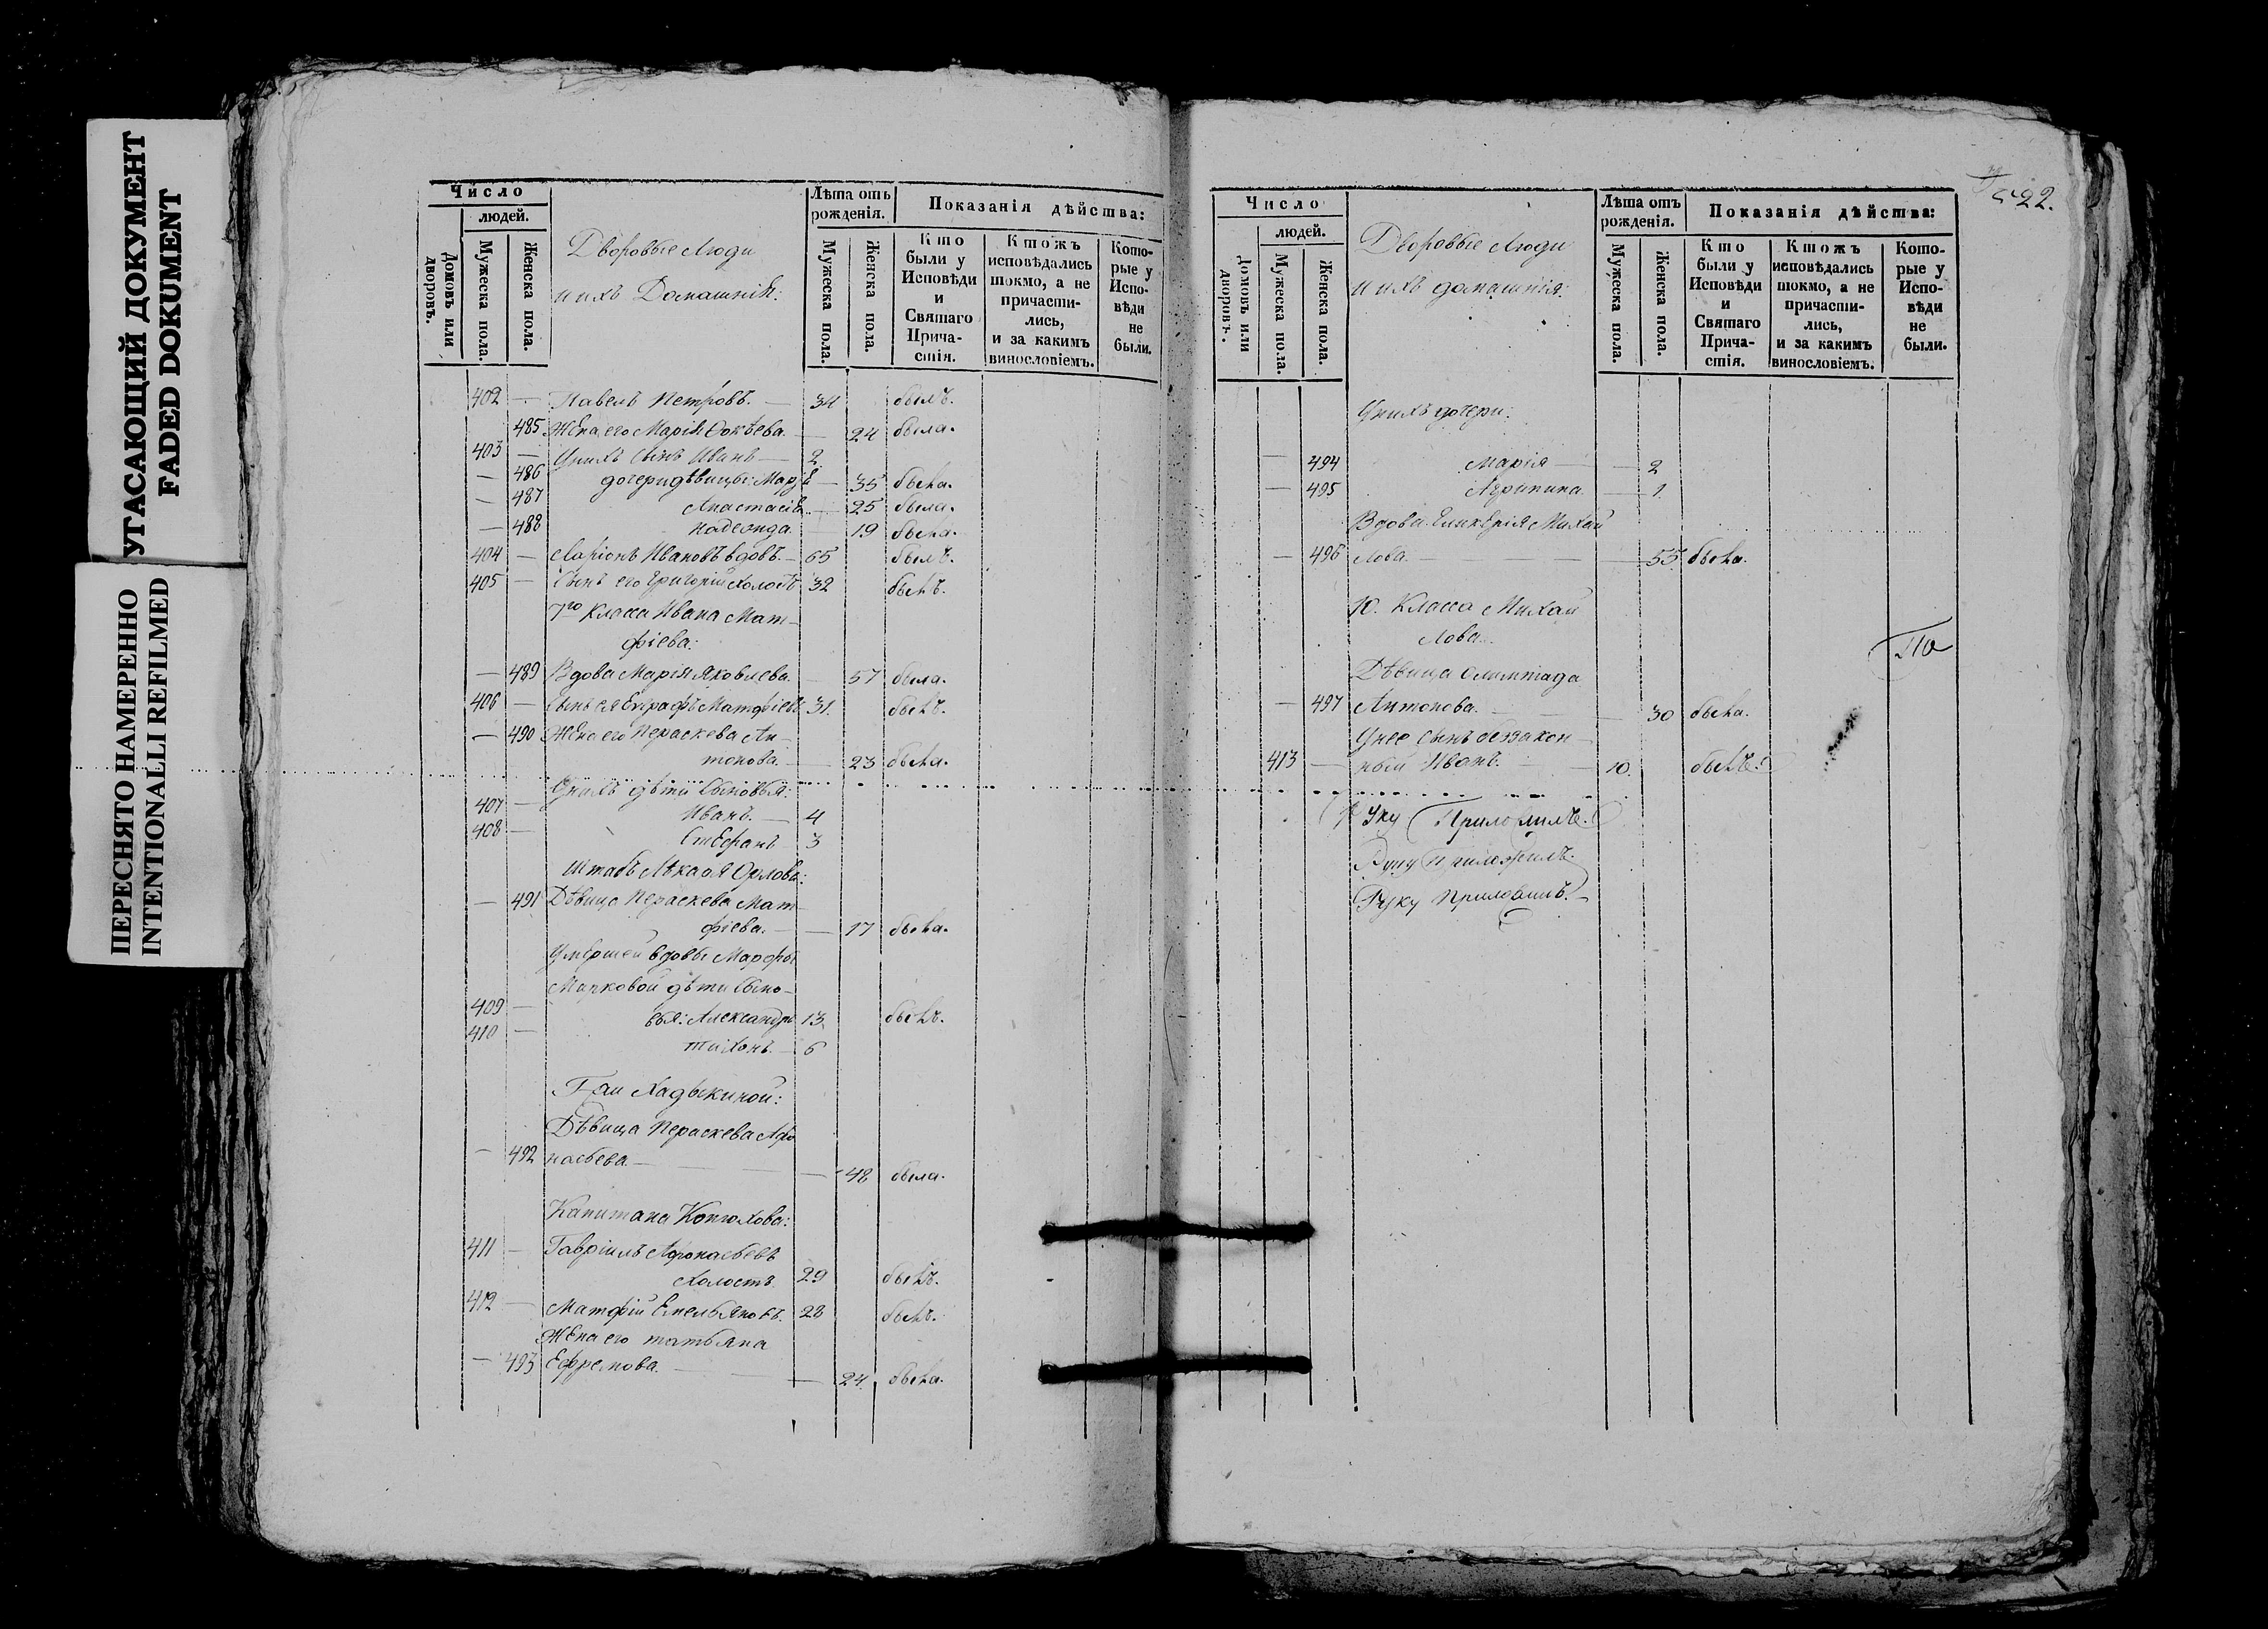 УГАСАЮЩИЙ ДОКУМЕНТ
FADED DOKUMENT
ПЕРЕСНЯТО НАМЕРЕННО
INTENTIONALLI REFILMED
Число
людей.
Домовъ или дворовъ.
Мужеска пола.
Женска пола.
Дворовые Люди
ихъ Домашнія:
Лѣта отъ рожденія.
Мужеска пола.
Женска пола.
Показанія дѣйства:
Кто были у Исповѣди и Святаго Причастія.
Ктожъ исповѣдались токмо, а не причастились, и за какимъ винословіемъ.
Которые у Исповѣди не были.
402 — Павелъ Петровъ. — 34 былъ.
485 Жена его Марія — 24 была.
403 — Унихъ сынъ Иванъ — 2
— 486 дочеридѣвицы: Марія — 35 была.
— 487 Анастасія — 25 была.
— 488 Надежда — 19 была.
404 — Ларіонъ Ивановъ вдовъ. — 65 былъ.
405 — Сынъ его Григорій холостъ 32 былъ.
7го Класса Ивана Мат-
фіева:
— 489 Вдова Марія Яковлева. — 57 была.
406 — Сынъ ея Евграфъ Матфіевъ 31. былъ.
— 490 Жена его Пераскева Ан-
тонова. — 23 была.
Унихъ дѣти сыновья:
407 — Иванъ. — 4
408 — Стефанъ 3
Штабъ Лѣкаря Орлова:
— 491 Дѣвица Пераскева Мат-
фіева. — 17 была.
Умершей вдовы Марфы
Марковой дѣти сыно-
409 — вья: Александръ 13 былъ.
410 — Тихонъ. — 6
Г-жи Хадыкиной:
Дѣвица Пераскева Афо
— 492 насьева. — 48 была.
Капитана Конюхова:
411 — Гавріилъ Афонасьевъ
холостъ 29 былъ.
412 — Матфій Емельяновъ. 28 былъ.
Жена его Татьяна
— 493 Ефремова. — 24. была.
22.
Число
людей.
Домовъ или дворовъ.
Мужеска пола.
Женска пола.
Дворовые Люди
ихъ домашнія:
Лѣта отъ рожденія.
Мужеска пола.
Женска пола.
Показанія дѣйства:
Кто были у Исповѣди и Святаго Причастія.
Ктожъ исповѣдались токмо, а не причастились, и за какимъ винословіемъ.
Которые у Исповѣди не были.
Унихъ дочери:
— 494 Марія — 2
— 495 Агрипина. — 1.
Вдова Гликерія Михай
— 496 лова. — 55 была.
10. Класса Михай
лова.
По
Дѣвица Олимпіада
— 497 Антонова. — 30 была.
Унее сынъ беззакон-
413 — ный Иванъ. — 10. былъ.
Руку Приложилъ.
Руку Приложилъ.
Руку Приложилъ.